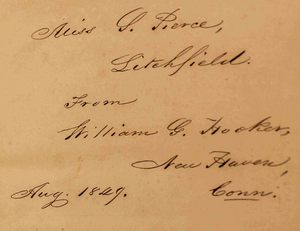 Miss S. Pierce,
Litchfield.
From
William G. Hooker,
New Haven,
Aug. 1849. Conn.